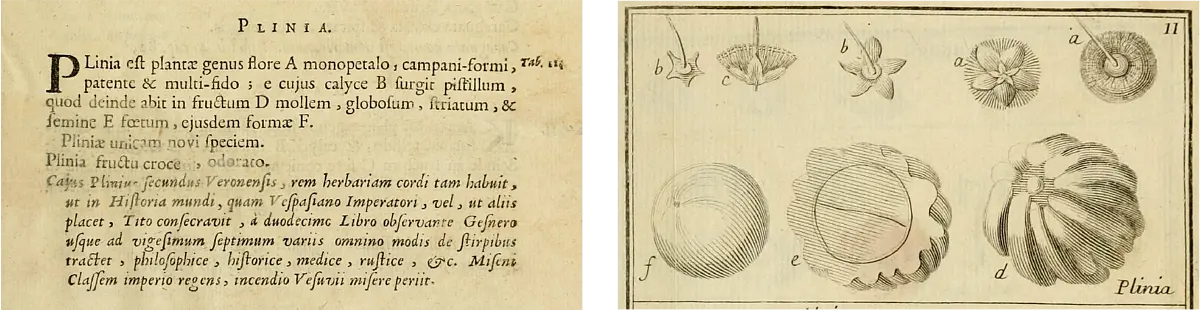 PLINIA.
PLinia est plantæ genus flore A monopetalo, campani-formi, Tab. 11.
patente & multi-fido; e cujus calyce B surgit pistillum,
quod deinde abit in fructum D mollem, globosum, striatum, &
semine E fœtum, ejusdem formæ F.
Pliniæ unicam novi speciem.
Plinia fructu croceo, odorato.
Cajus Plinius secundus Veronensis, rem herbariam cordi tam habuit,
ut in Historia mundi, quam Vespasiano Imperatori, vel, ut aliis
placet, Tito consecravit, a duodecimo Libro observante Gesnero
usque ad vigesimum septimum variis omnino modis de stirpibus
tractet, philosophice, historice, medice, rustice, &c. Miseni
Classem imperio regens, incendio Vesuvii misere periit.
11
b c b a a
f e d
Plinia